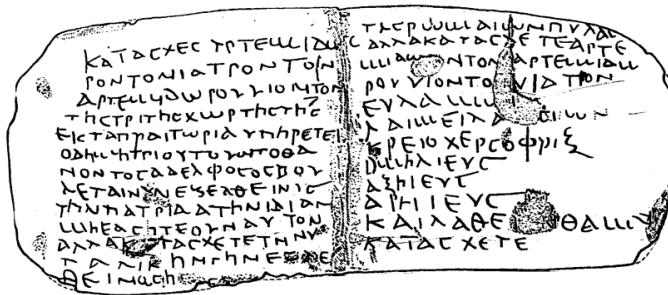 ΚΑΤΑϹΧΕϹ ΑΡΤΕΜΙΔΩ
ΡΟΝΤΟΝΙΑΤΡΟΝΤΟΝ
ΑΡΤΕΜΙΔΩΡΟΥΥΙΟΝΤΟΝ
ΤΗϹΤΡΙΤΗϹΧΩΡΤΗϹΤΗϹ
ΕΙϹΤΑΠΡΑΙΤΩΡΙΑΥΠΗΡΕΤΕΙ
ΟΔΗΜΗΤΡΙΟΥΤΟΥ ΘΑ
ΝΟΝΤΟϹΑΔΕΛΦΟϹΟϹΒΟΥ
ΛΕΤΑΙΝΥΝΕΞΕΛΘΕΙΝΙϹ
ΤΗΝΠΑΤΡΙΔΑΤΗΝΙΔΙΑΝ
ΜΗΕΑϹΗΤΕΟΥΝΑΥΤΟΝ
ΑΛΛΑΚΑΤΑϹΧΕΤΕΤΗΝ
ΤΑΛΙΚΗΝΓΗΝ
ΘΕΙΝΑϹΗ
ΤΗΕΡΩΜΑΙΩΝΠΥΛΑ
ΑΛΛΑΚΑΤΑϹΧΕΤΕΑΡΤΕ
ΜΙΔΩΡΟΝΤΟΝΑΡΤΕΜΙΔΩ
ΡΟΥΥΙΟΝΤΟΝΙΑΤΡΟΝ
ΕΥΛΑΜΩ
ΛΑΜΕΙΛΑ
ΡΕΙΟΧΕΡϹΟΦΡΙΞ
ΑΞΗΙΕΥϹ
ΑΡΗΙΕΥϹ
ΚΑΙΛΑΘΕ ΘΑΜΥ
ΚΑΤΑϹΧΕΤΕ